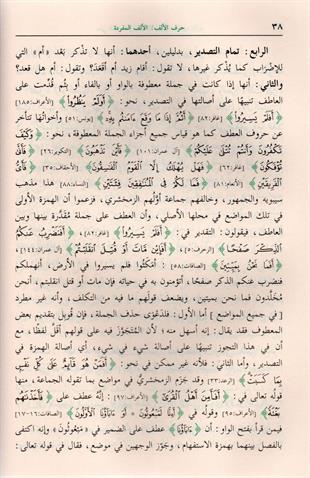 ٣٨ حرف الألف/ الألف المفردة
الرابع: تمام التصدير، بدليلين، أحدهما: أنها لا تذكر بعْدَ «أم» التي
للإضراب كما يُذكر غيرها، لا تقول: أقام زيد أم أقعَدَ؟ وتقول: أم هل قعد؟
والثاني: أنها إذا كانت في جملة معطوفة بالواو أو بالفاء أو بثمَّ قُدِّمت على
العاطف تنبيهًا على أصالتها في التصدير، نحو: ﴿أَوَلَمْ يَنظُرُوا۟﴾ [الأعراف: ١٨٥]
﴿أَفَلَمْ يَسِيرُوا۟﴾ [غافر: ٨٢] ﴿أَثُمَّ إِذَا مَا وَقَعَ ءَامَنتُم بِهِۦٓ﴾ [يونس: ٥١] وأخواتُها تتأخر
عن حروف العطف كما هو قياس جميع أجزاء الجملة المعطوفة، نحو: ﴿وَكَيْفَ
تَكْفُرُونَ وَأَنتُمْ تُتْلَىٰ عَلَيْكُمْ﴾ [آل عمران: ١٠١] ﴿فَأَيْنَ تَذْهَبُونَ﴾ [التكوير: ٢٦] ﴿فَأَنَّىٰ
تُؤْفَكُونَ﴾ [غافر: ٦٢] ﴿فَهَلْ يُهْلَكُ إِلَّا ٱلْقَوْمُ ٱلْفَٰسِقُونَ﴾ [الأحقاف: ٣٥] ﴿فَأَىُّ
ٱلْفَرِيقَيْنِ﴾ [الأنعام: ٨١] ﴿فَمَا لَكُمْ فِى ٱلْمُنَٰفِقِينَ فِئَتَيْنِ﴾ [النساء: ٨٨] هذا مذهب
سيبويه والجمهور، وخالفهم جماعة أوَّلُهم الزمخشري، فزعموا أن الهمزة الأولى
في تلك المواضع في محلها الأصلي، وأن العطف على جملة مُقَدَّرة بينها وبين
العاطف، فيقولون: التقدير في: ﴿أَفَلَمْ يَسِيرُوا۟﴾ [غافر: ٨٢]، ﴿أَفَنَضْرِبُ عَنكُمُ
ٱلذِّكْرَ صَفْحًا﴾ [الزخرف: ٥]، ﴿أَفَإِي۟ن مَّاتَ أَوْ قُتِلَ ٱنقَلَبْتُمْ﴾ [آل عمران: ١٤٤]
﴿أَفَمَا نَحْنُ بِمَيِّتِينَ﴾ [الصافات: ٥٨]: أمَكَثُوا فلم يسيروا في الأرض، أنهملكم
فنضرب عنكم الذكر صفحًا، أتؤمنون به في حياته فإن مات أو قتل انقلبتم، أنحن
مُخَلَّدون فما نحن بميتين، ويضعف قولَهم ما فيه من التكلف، وأنه غير مطرد
[في جميع المواضع] أما الأول: فلدَعْوَى حذف الجملة، فإن قوبِلَ بتقديم بعض
المعطوف فقد يقال: إنه أسهل منه؛ لأن المتَجَوَّزَ فيه على قولهم أقلُّ لفظًا، مع
أن في هذا التجوز تنبيهًا على أصالة شيء في شيء، أي أصالة الهمزة في
التصدير، وأما الثاني: فلأنه غير ممكن في نحو: ﴿أَفَمَنْ هُوَ قَآئِمٌ عَلَىٰ كُلِّ نَفْسٍۭ
بِمَا كَسَبَتْ﴾ [الرعد: ٣٣] وقد جَزَم الزمخشري في مواضع بما تقوله الجماعة، منها
قوله في: ﴿أَفَأَمِنَ أَهْلُ ٱلْقُرَىٰٓ﴾ [الأعراف: ٩٧]: إنه عطف على ﴿فَأَخَذْنَٰهُم
بَغْتَةً﴾ [الأعراف: ٩٥] وقولُه في ﴿أَءِنَّا لَمَبْعُوثُونَ * أَوَءَابَآؤُنَا ٱلْأَوَّلُونَ﴾ [الصافات: ١٦-١٧]
فيمن قرأ بفتح الواو: إن ﴿ءَابَآؤُنَا﴾ عطف على الضمير في ﴿مَبْعُوثُونَ﴾ وإنه اكتفى
بالفصل بينهما بهمزة الاستفهام، وجَوَّز الوجهين في موضع، فقال في قوله تعالى: